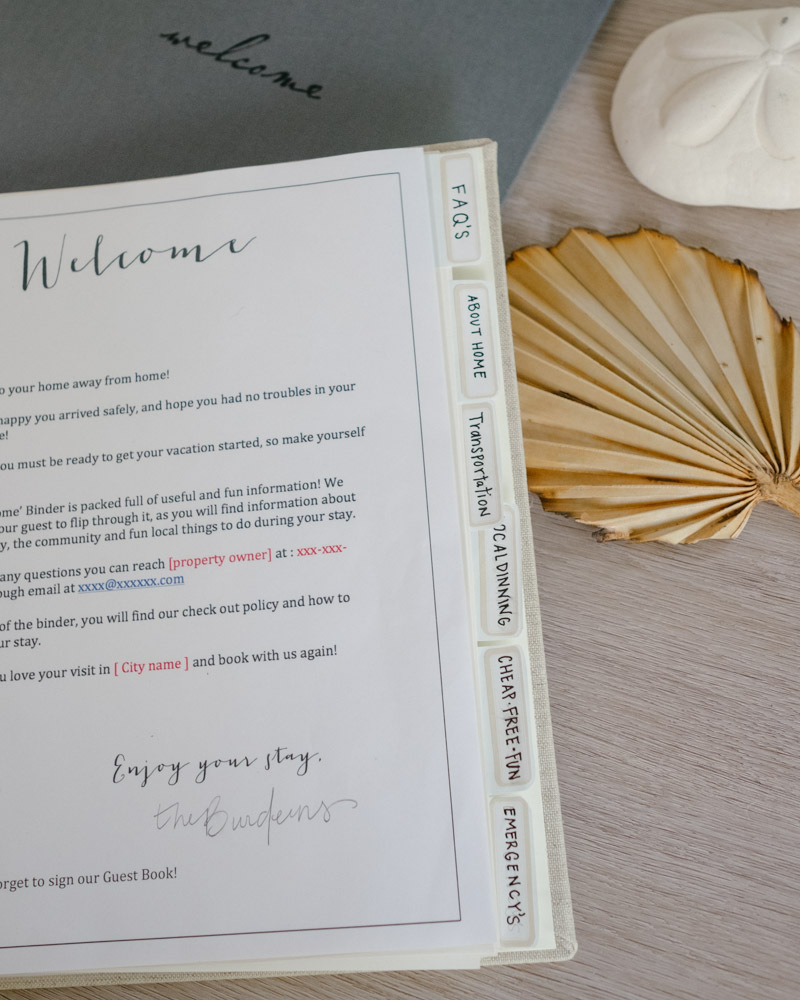 welcome
Welcome
your home away from home!
happy you arrived safely, and hope you had no troubles in your
you must be ready to get your vacation started, so make yourself
Binder is packed full of useful and fun information! We
our guest to flip through it, as you will find information about
the community and fun local things to do during your stay.
any questions you can reach [property owner] at : xxx-xxx-
email at xxxx@xxxxxx.com
of the binder, you will find our check out policy and how to
stay.
love your visit in [ City name ] and book with us again!
Enjoy your stay,
to sign our Guest Book!
FAQ'S
ABOUT HOME
Transportation
DINNING
CHEAP·FREE·FUN
EMERGENCY'S